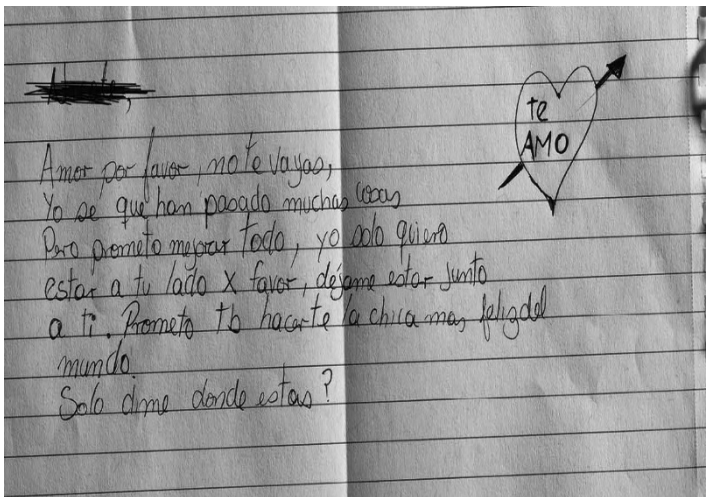 te
AMO
Amor por favor, no te vayas,
Yo se que han pasado muchas cosas
Pero prometo mejorar todo, yo solo quiero
estar a tu lado x favor, déjame estar junto
a ti. Prometo tb hacerte la chica mas feliz del
mundo.
Solo dime donde estas?